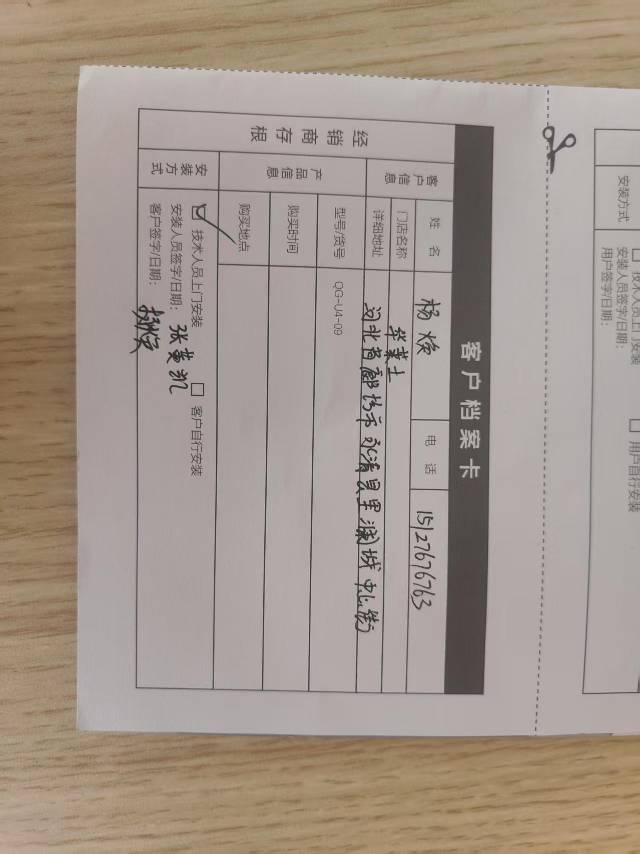 客户档案卡
经销商存根
客户信息
姓名 杨焕 电话 15127676763
门店名称 华美士
详细地址 河北省廊坊市永清县里澜城中心街
产品信息
型号/货号 QG-U4-09
购买时间
购买地点
安装方式
☑ 技术人员上门安装 □ 客户自行安装
安装人员签字/日期: 张英凯
客户签字/日期: 杨焕
安装方式
□ 技术人员上门安装 □ 用户自行安装
安装人员签字/日期:
用户签字/日期: